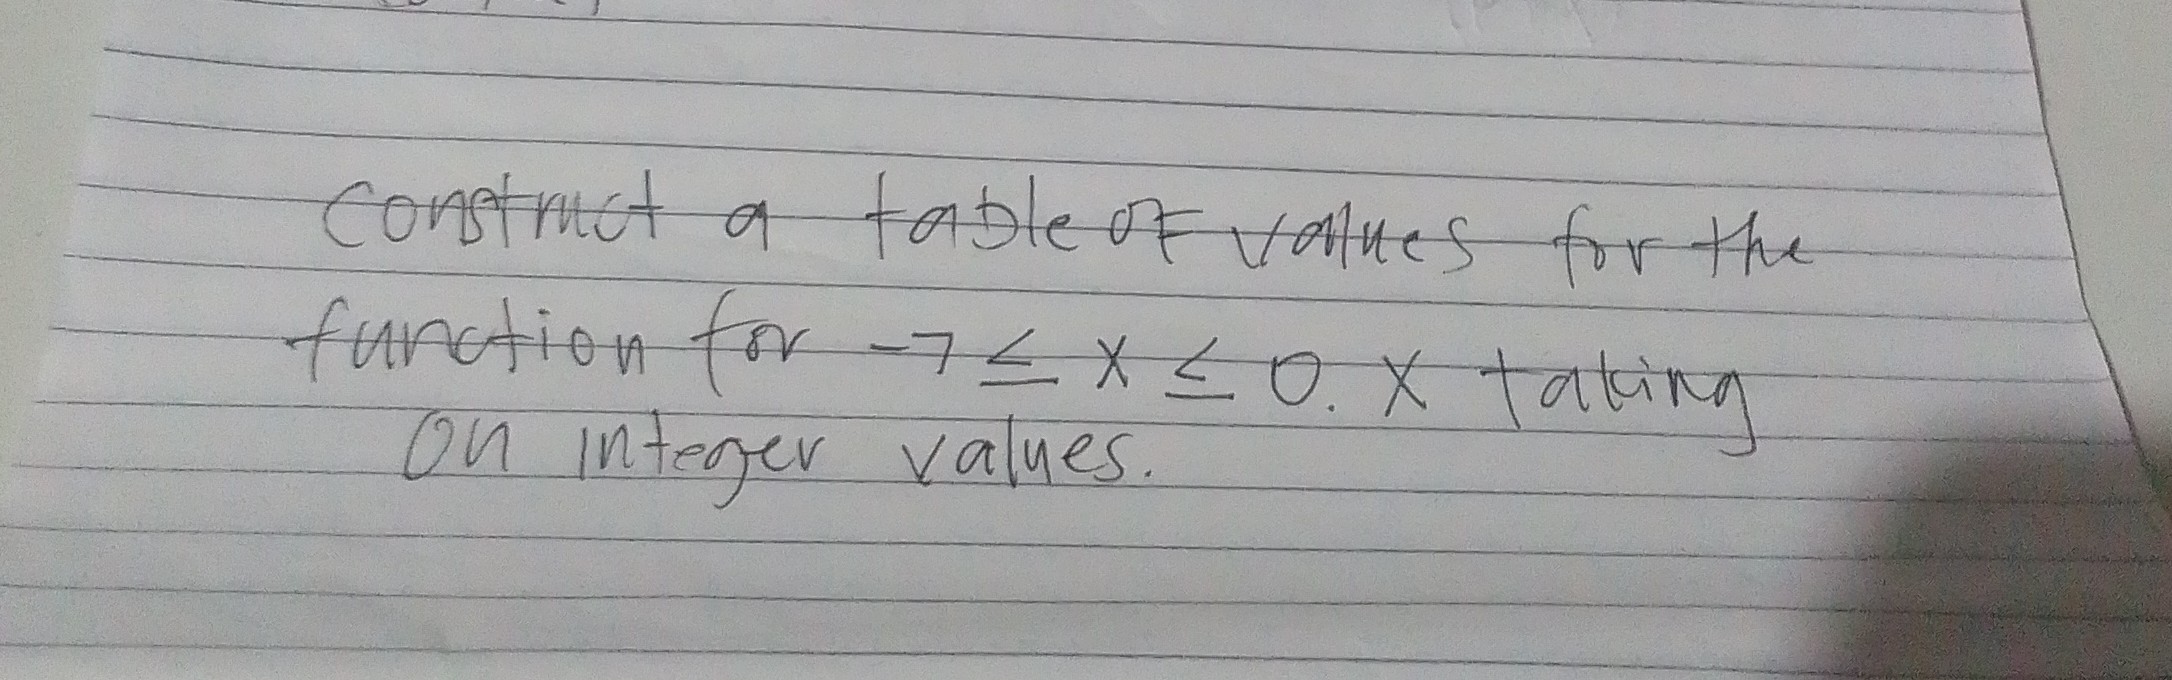 construct a table of values for the
function for -7 ≤ x ≤ 0. x taking
on integer values.